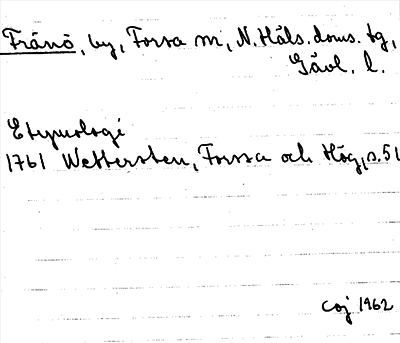 Frånö, by, Forsa sn, N. Häls. doms. tg,
Gävl. l.
Etymologi
1761 Wettersten, Forssa och Hög, s. 51
coj 1962